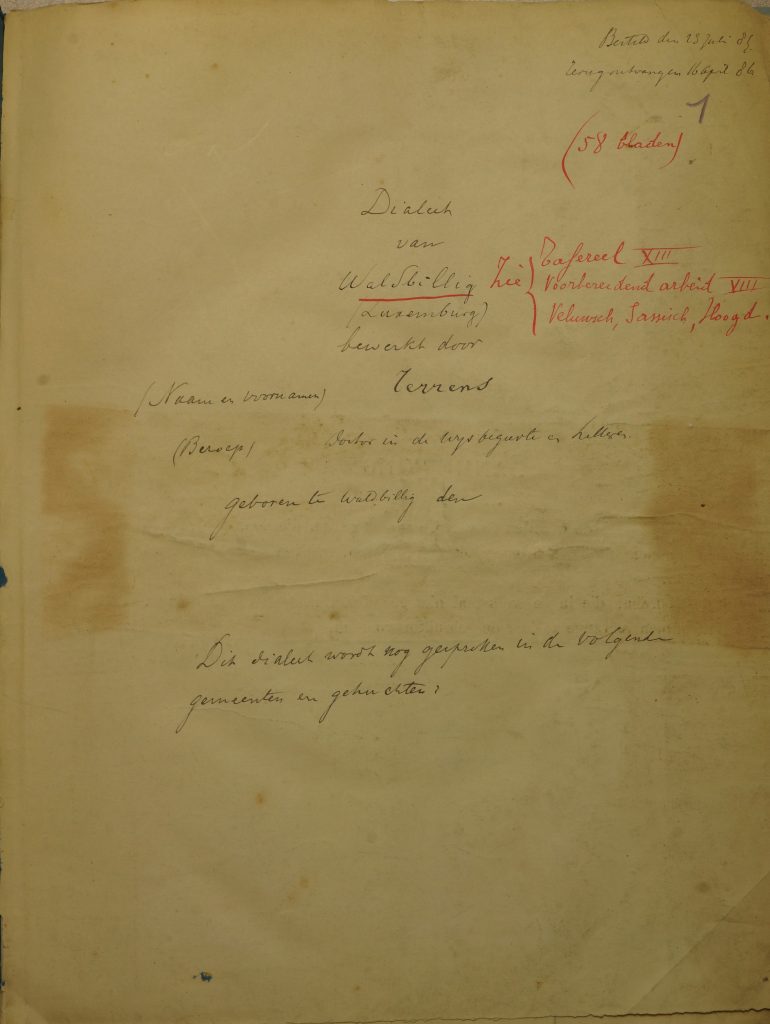 Besteld den 23 Juli 85
Terug ontvangen 16 April 86
1
(58 bladen)
Dialect
van
Waldbillig Zie { Tafereel XIII
Voorbereidend arbeid VIII
Veluwsch, Sassisch, Hoogd.
(Luxemburg)
bewerkt door
(Naam en voornamen) Terrens
(Beroep) doctor in de wijsbegeerte en letteren
geboren te Waldbillig den
Dit dialect wordt nog gesproken in de volgende
gemeenten en gehuchten: